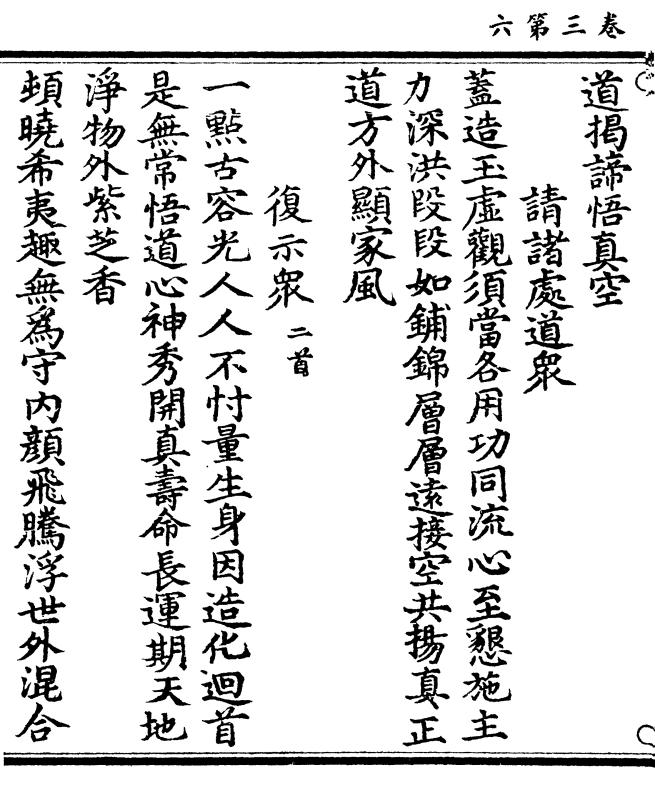 卷三第六
道揭諦悟真空
請諸處道衆
蓋造玉虛觀須當各用功同流心至懇施主
力深洪段段如鋪錦層層遠接空共揚真正
道方外顯家風
復示衆二首
一點古容光人人不忖量生身因造化迴首
是無常悟道心神秀開真壽命長運期天地
淨物外紫芝香
頓曉希夷趣無爲守內顔飛騰浮世外混合